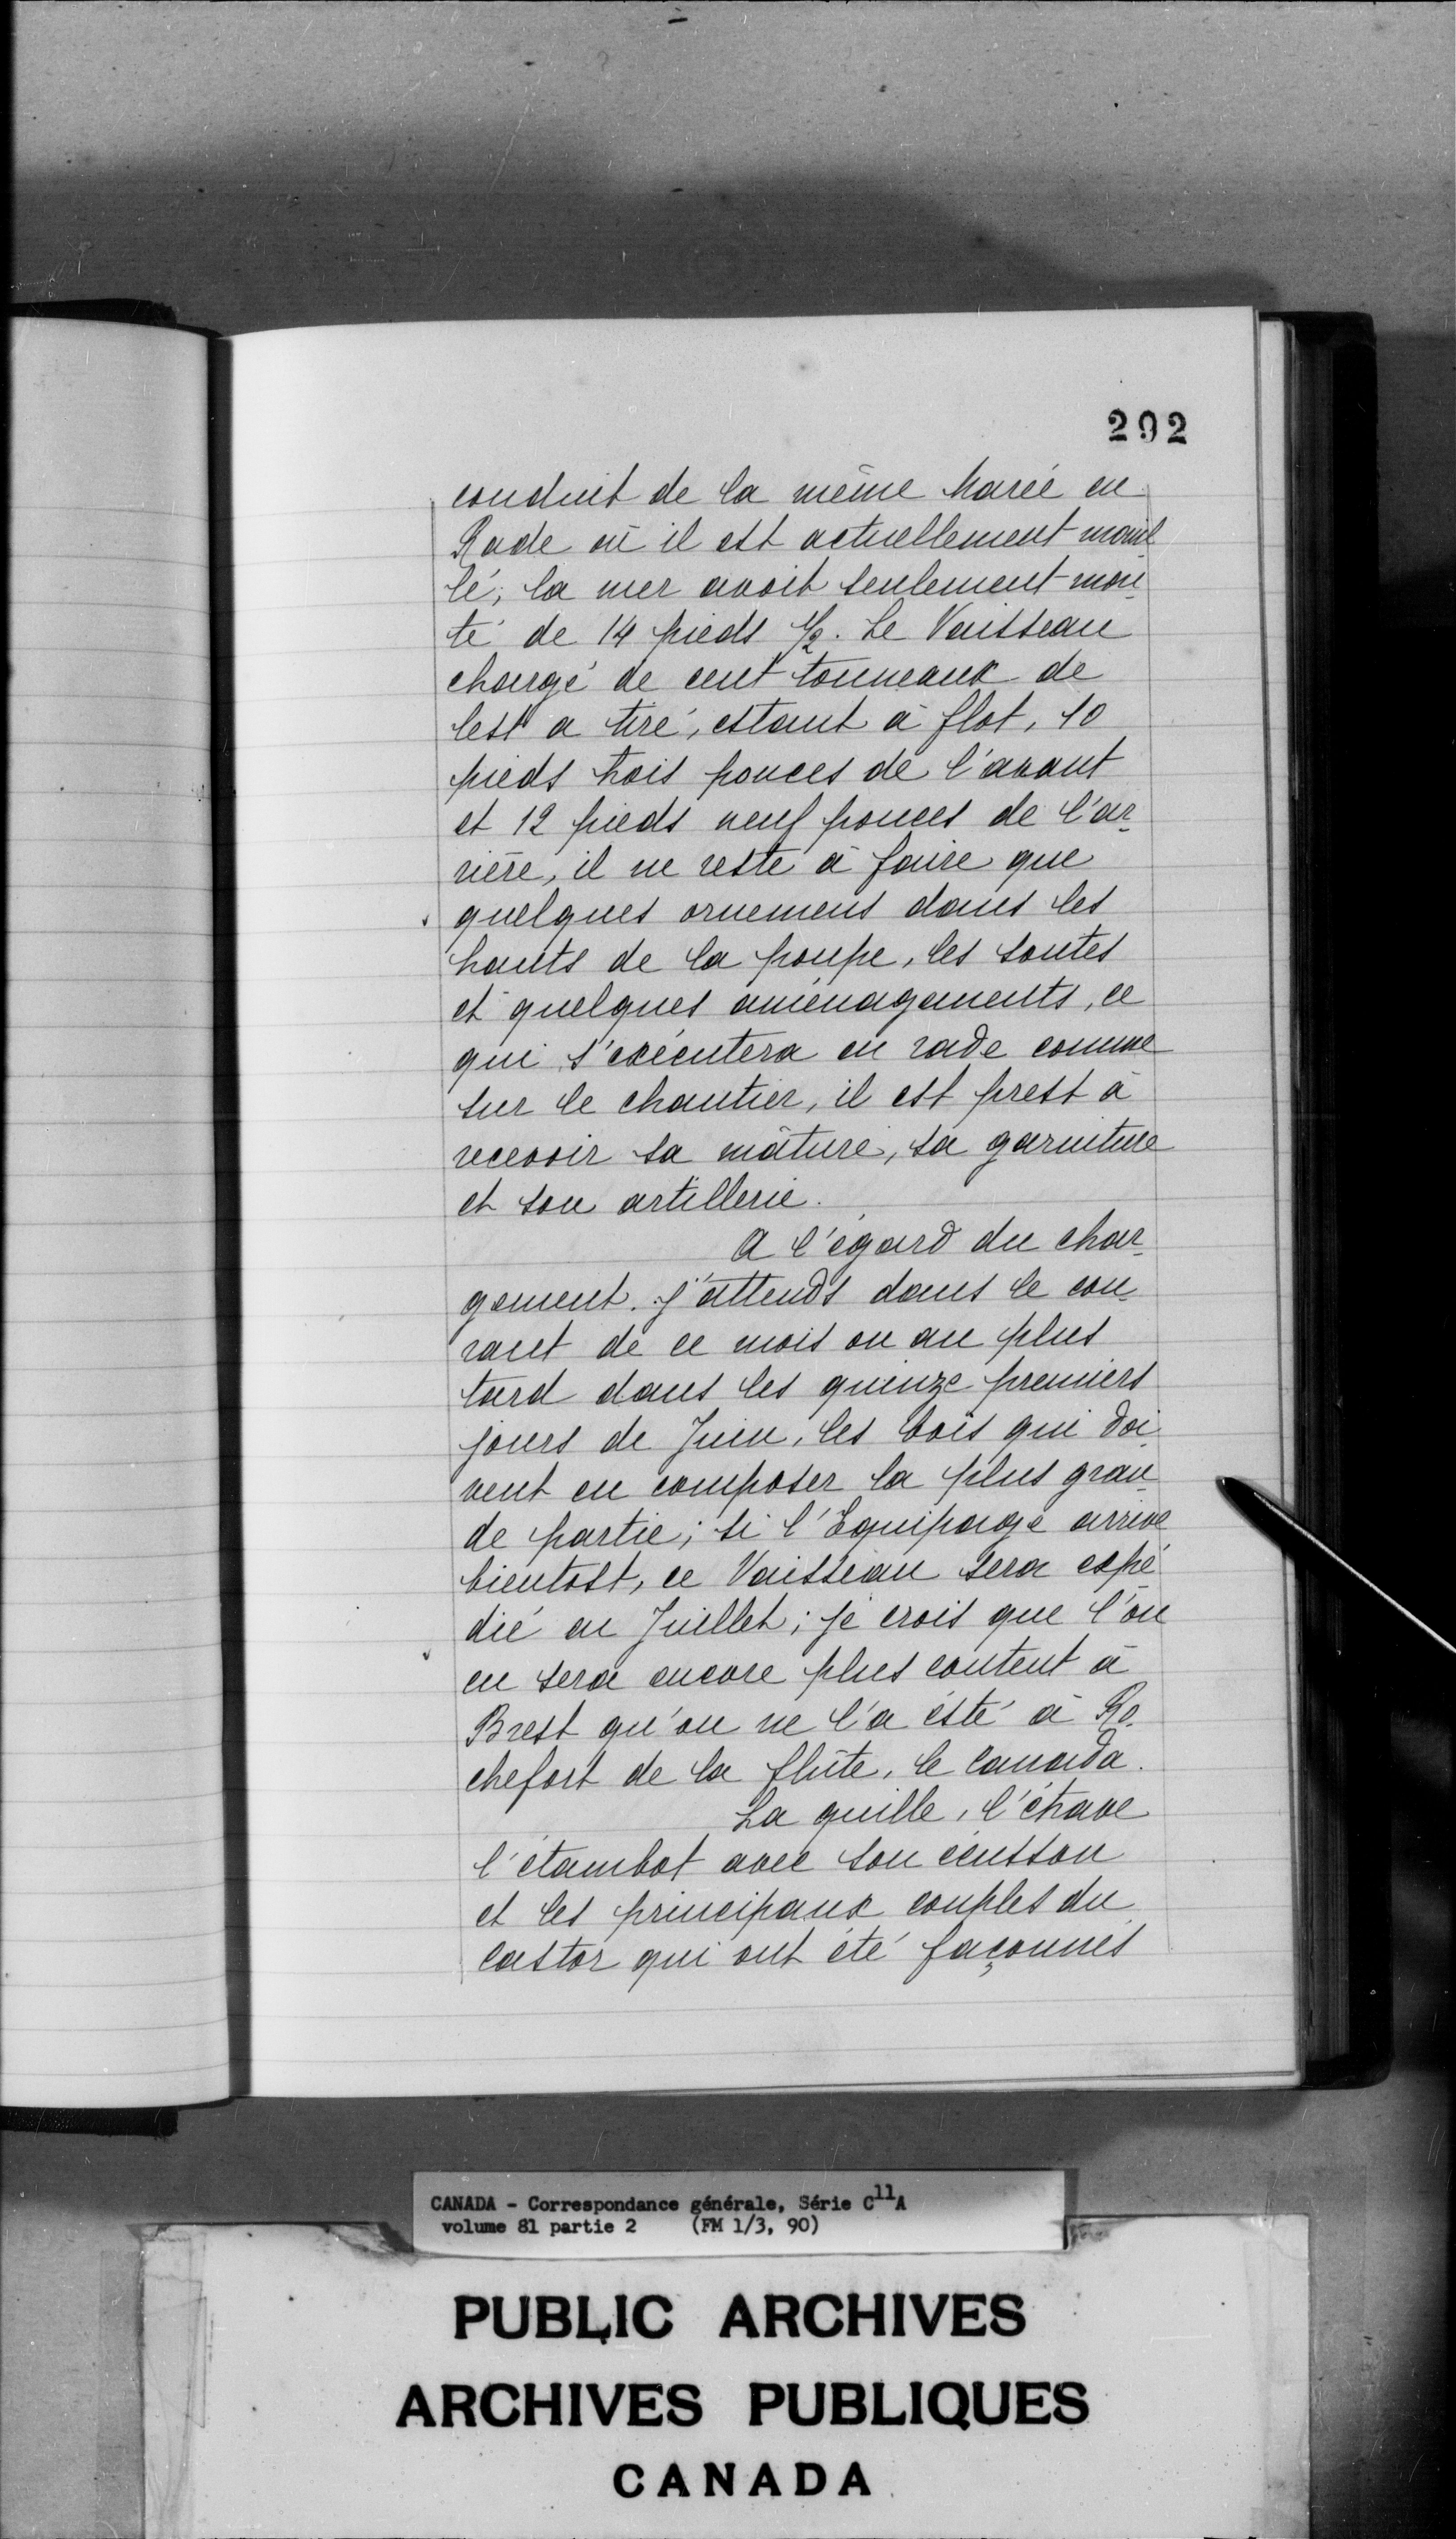 292
conduit de la même Marée en
Rade où il est actuellement mouil
lé; la mer avoit seulement mon-
té de 14 pieds 1/2. Le Vaisseau
chargé de cent tonneaux de
lest a tiré, estant à flot, 10
pieds trois pouces de l'avant
et 12 pieds neuf pouces de l'ar-
rière, il ne reste à faire que
quelques ornemens dans les
hauts de la poupe, les soutes
et quelques aménagements, ce
qui s'exécutera en rade comme
sur le chantier, il est prest à
recevoir sa mâture, sa garniture
et son artillerie.
A l'égard du char-
gement. j'attends dans le cou-
rant de ce mois ou au plus
tard dans les quinze premiers
jours de Juin, les bois qui doi-
vent en composer la plus gran-
de partie; si l'Equipage arrive
bientost, ce Vaisseau sera expé
dié en Juillet; je crois que l'on
en sera encore plus content à
Brest qu'on ne l'a ésté à Ro-
chefort de la flûte, le Canada.
La quille, l'étrave
l'étambot avec son écusson
et les principaux couples du
castor qui ont été façonnés
CANADA - Correspondance générale, Série C11A
volume 81 partie 2 (FM 1/3, 90)
PUBLIC ARCHIVES
ARCHIVES PUBLIQUES
CANADA